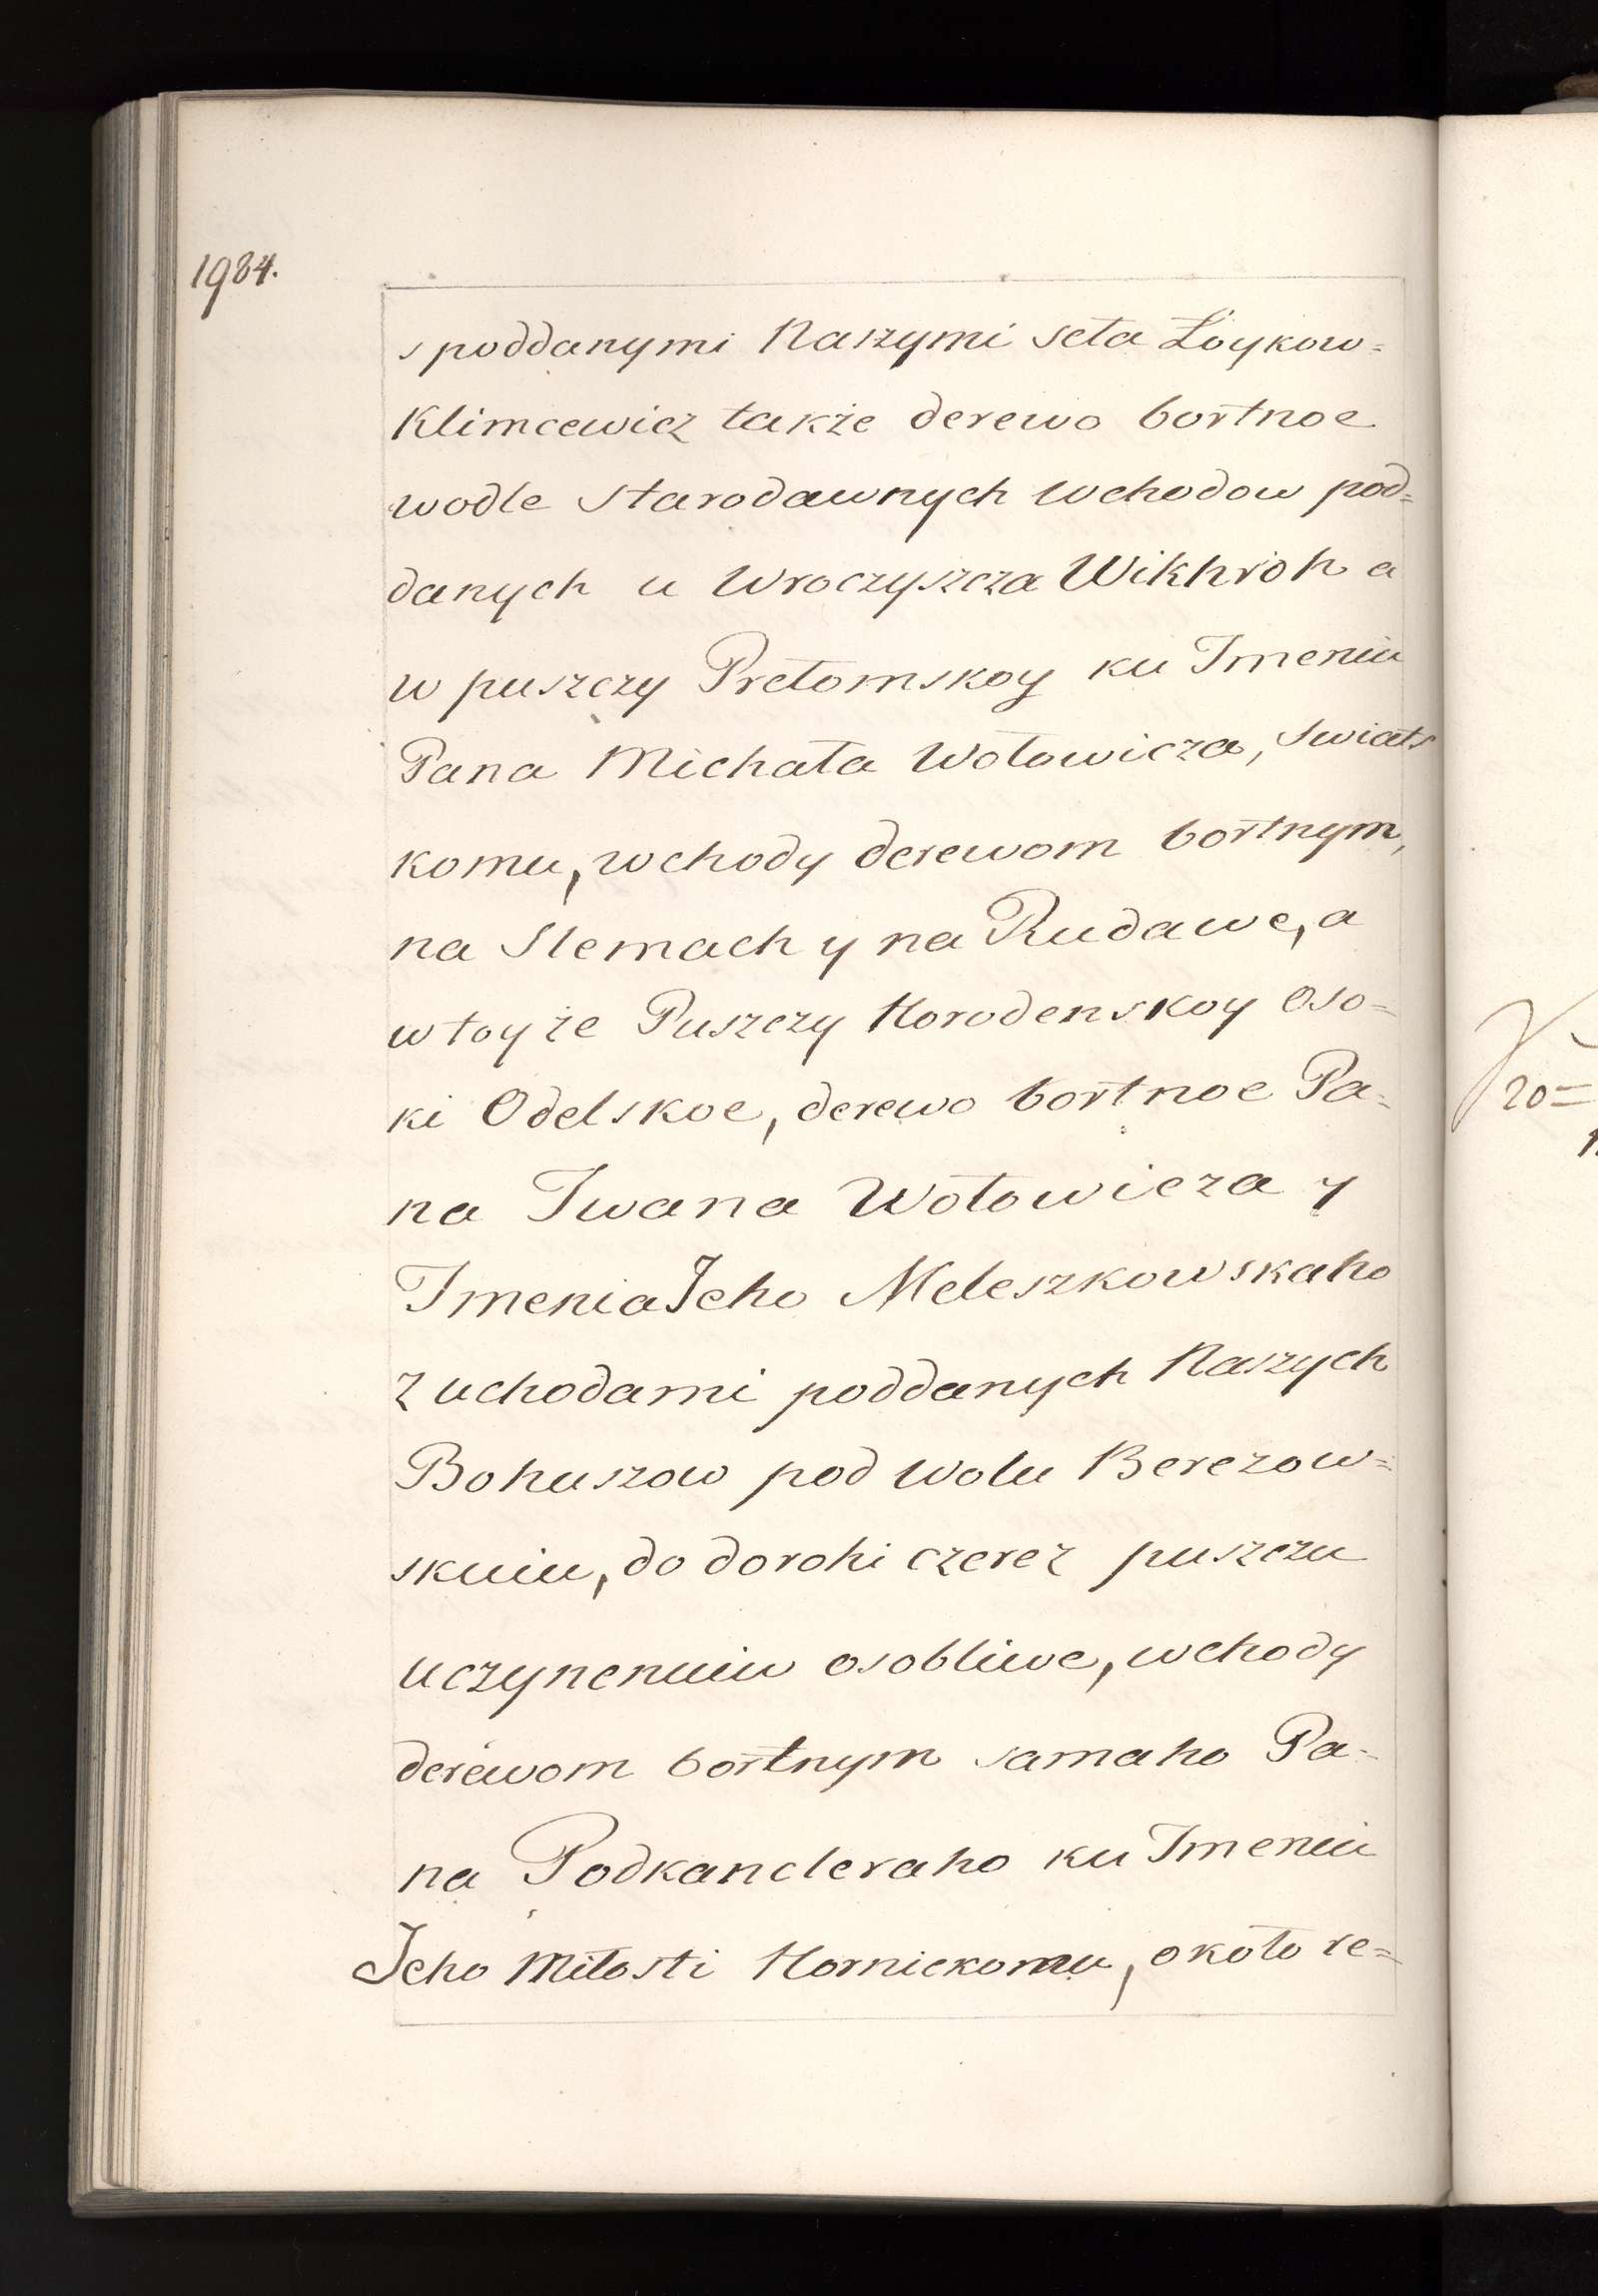 1984.
s poddanymi Naszymi seła Łoykow=
Klimcewicz także derewo bortnoe
wodle starodawnych wchodow pod=
danych u Wroczyszcza Wikhroh a
w puszczy Prełomskoy ku Imeniu
Pana Michała Wołowicza, Swiats
komu, wchody derewom bortnym,
na Slemach y na Rudawe, a
w toy że Puszczy Horodenskoy Oso=
ki Odelskoe, derewo bortnoe Pa=
na Iwana Wołowicza y
Imenia Jeho Meleszkowskaho
z uchodami poddanych Naszych
Bohuszow pod Wolu Berezow=
skuiu, do dorohi czerez puszczu
uczynenuiu osobliwe, wchody
derewom bortnym samaho Pa=
na Podkancleraho ku Imeniu
Jeho Miłosti Hornickomu, około re=
20=